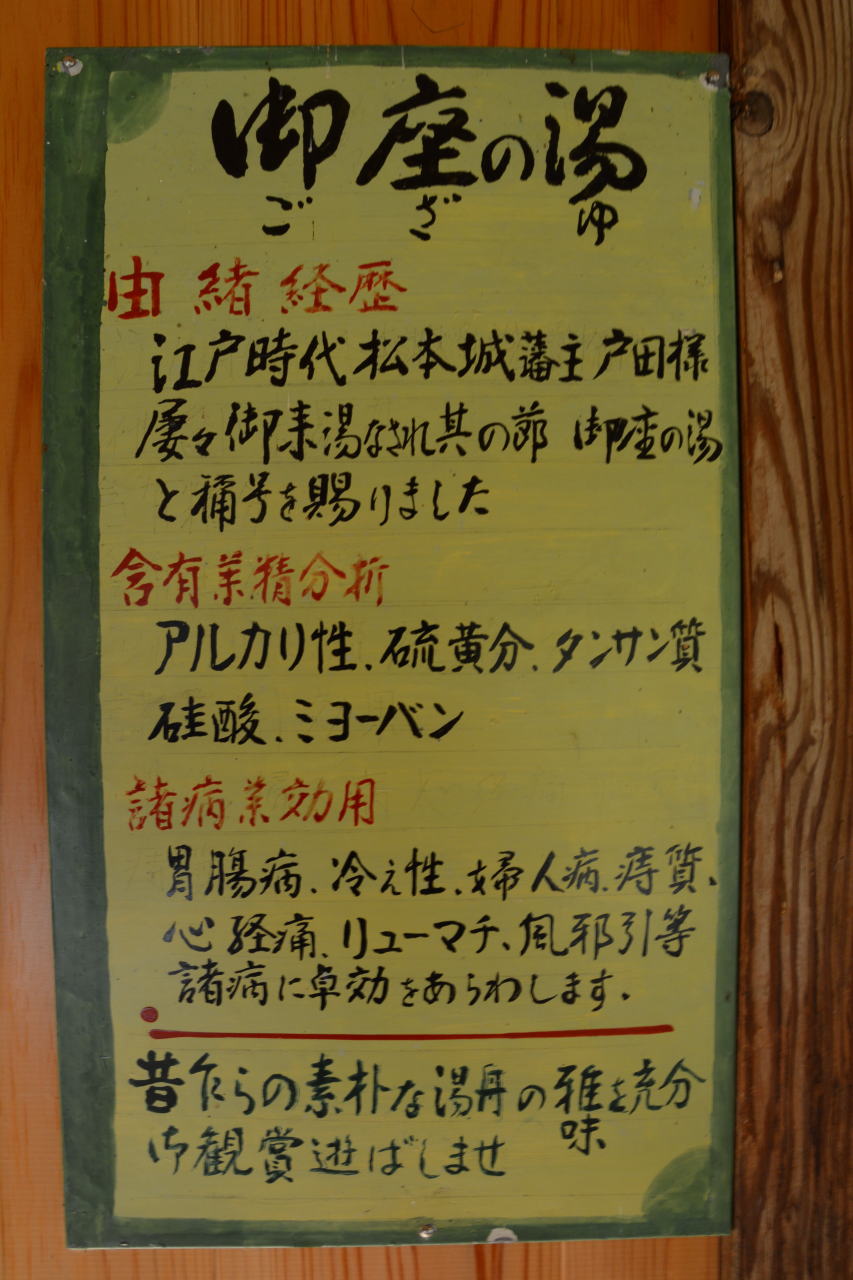 御座の湯
ござゆ
由緒経歴
江戸時代松本城藩主戸田様
屡々御来湯なされ其の節 御座の湯
と称号を賜りました
含有薬精分折
アルカリ性、硫黄分、タンサン質
硅酸、ミヨーバン
諸病薬効用
胃腸病、冷え性、婦人病、痔質、
心経痛、リューマチ、風邪引等
諸病に卓効をあらわします。
昔乍らの素朴な湯舟の雅味を充分
御観賞遊ばしませ